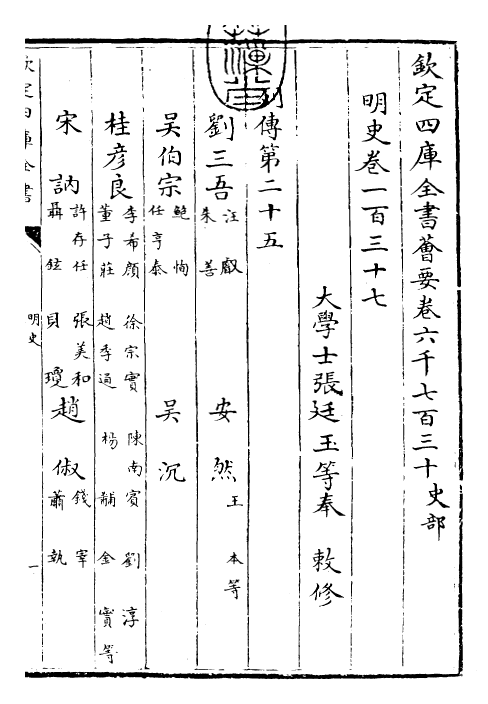 欽定四庫全書薈要卷六千七百三十史部
明史卷一百三十七
大學士張廷玉等奉 敕修
列傳第二十五
劉三吾 汪叡 朱善 安然 王本等
吳伯宗 鮑恂 任亨泰 吳沉
桂彥良 李希顔 徐宗實 陳南賓 劉淳 董子莊 趙季通 楊黼 金實等
宋訥 許存仁 張美和 聶鉉 貝瓊 趙俶 錢宰 蕭執
欽定四庫全書
明史
一